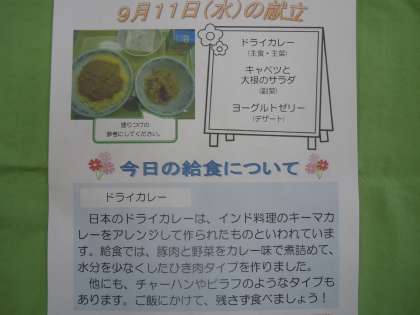 9月11日(水)の献立
ドライカレー
(主食・主菜)
キャベツと
大根のサラダ
(副菜)
ヨーグルトゼリー
(デザート)
盛りつけの
参考にしてください。
今日の給食について
ドライカレー
日本のドライカレーは、インド料理のキーマカ
レーをアレンジして作られたものといわれていま
す。給食では、豚肉と野菜をカレー味で煮詰めて、
水分を少なくしたひき肉タイプを作りました。
他にも、チャーハンやピラフのようなタイプも
あります。ご飯にかけて、残さず食べましょう！